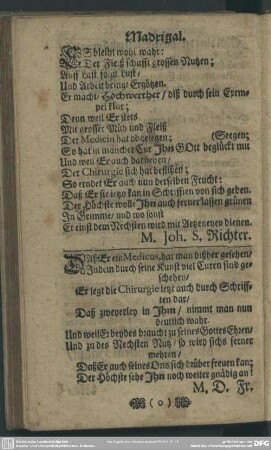 Madrigal.
Es bleibt wohl wahr:
Der Fleiß schafft grossen Nutzen;
Auff Last folgt Lust/
Und Arbeit bringt Ergötzen.
Er macht/ Hochwerther/ diß durch sein Exem-
pel klar;
Denn weil Er stets
Mit grosser Müh und Fleiß
Der Medicin hat obgelegen; (Seegen;
So hat in mancher Cur Ihn GOtt beglückt mit
Und weil Er auch darneben/
Der Chirurgie sich hat beflissen;
So erndet Er auch nun derselben Frucht:
Daß Er sie itzo kan in Schrifften von sich geben.
Der Höchste wolle Ihn auch ferner lassen grünen
In Grimme/ und wo sonst
Er einst dem Nechsten wird mit Artzeneyen dienen.
M. Joh. S. Richter.
Daß Er ein Medicus, hat man bißher gesehen/
Indem durch seine Kunst viel Curen sind ge-
schehen/
Er legt die Chirurgie jetzt auch durch Schriff-
ten dar/
Daß zweyerley in Ihm/ nimmt man nun
deutlich wahr.
Und weil Er beydes braucht zu seines Gottes Ehren/
Und zu des Nechsten Nutz/ so wird sichs ferner
mehren/
Daß Er auch seines Orts sich drüber freuen kan;
Der Höchste sehe Ihn noch weiter gnädig an!
M. D. Fr.
(o)